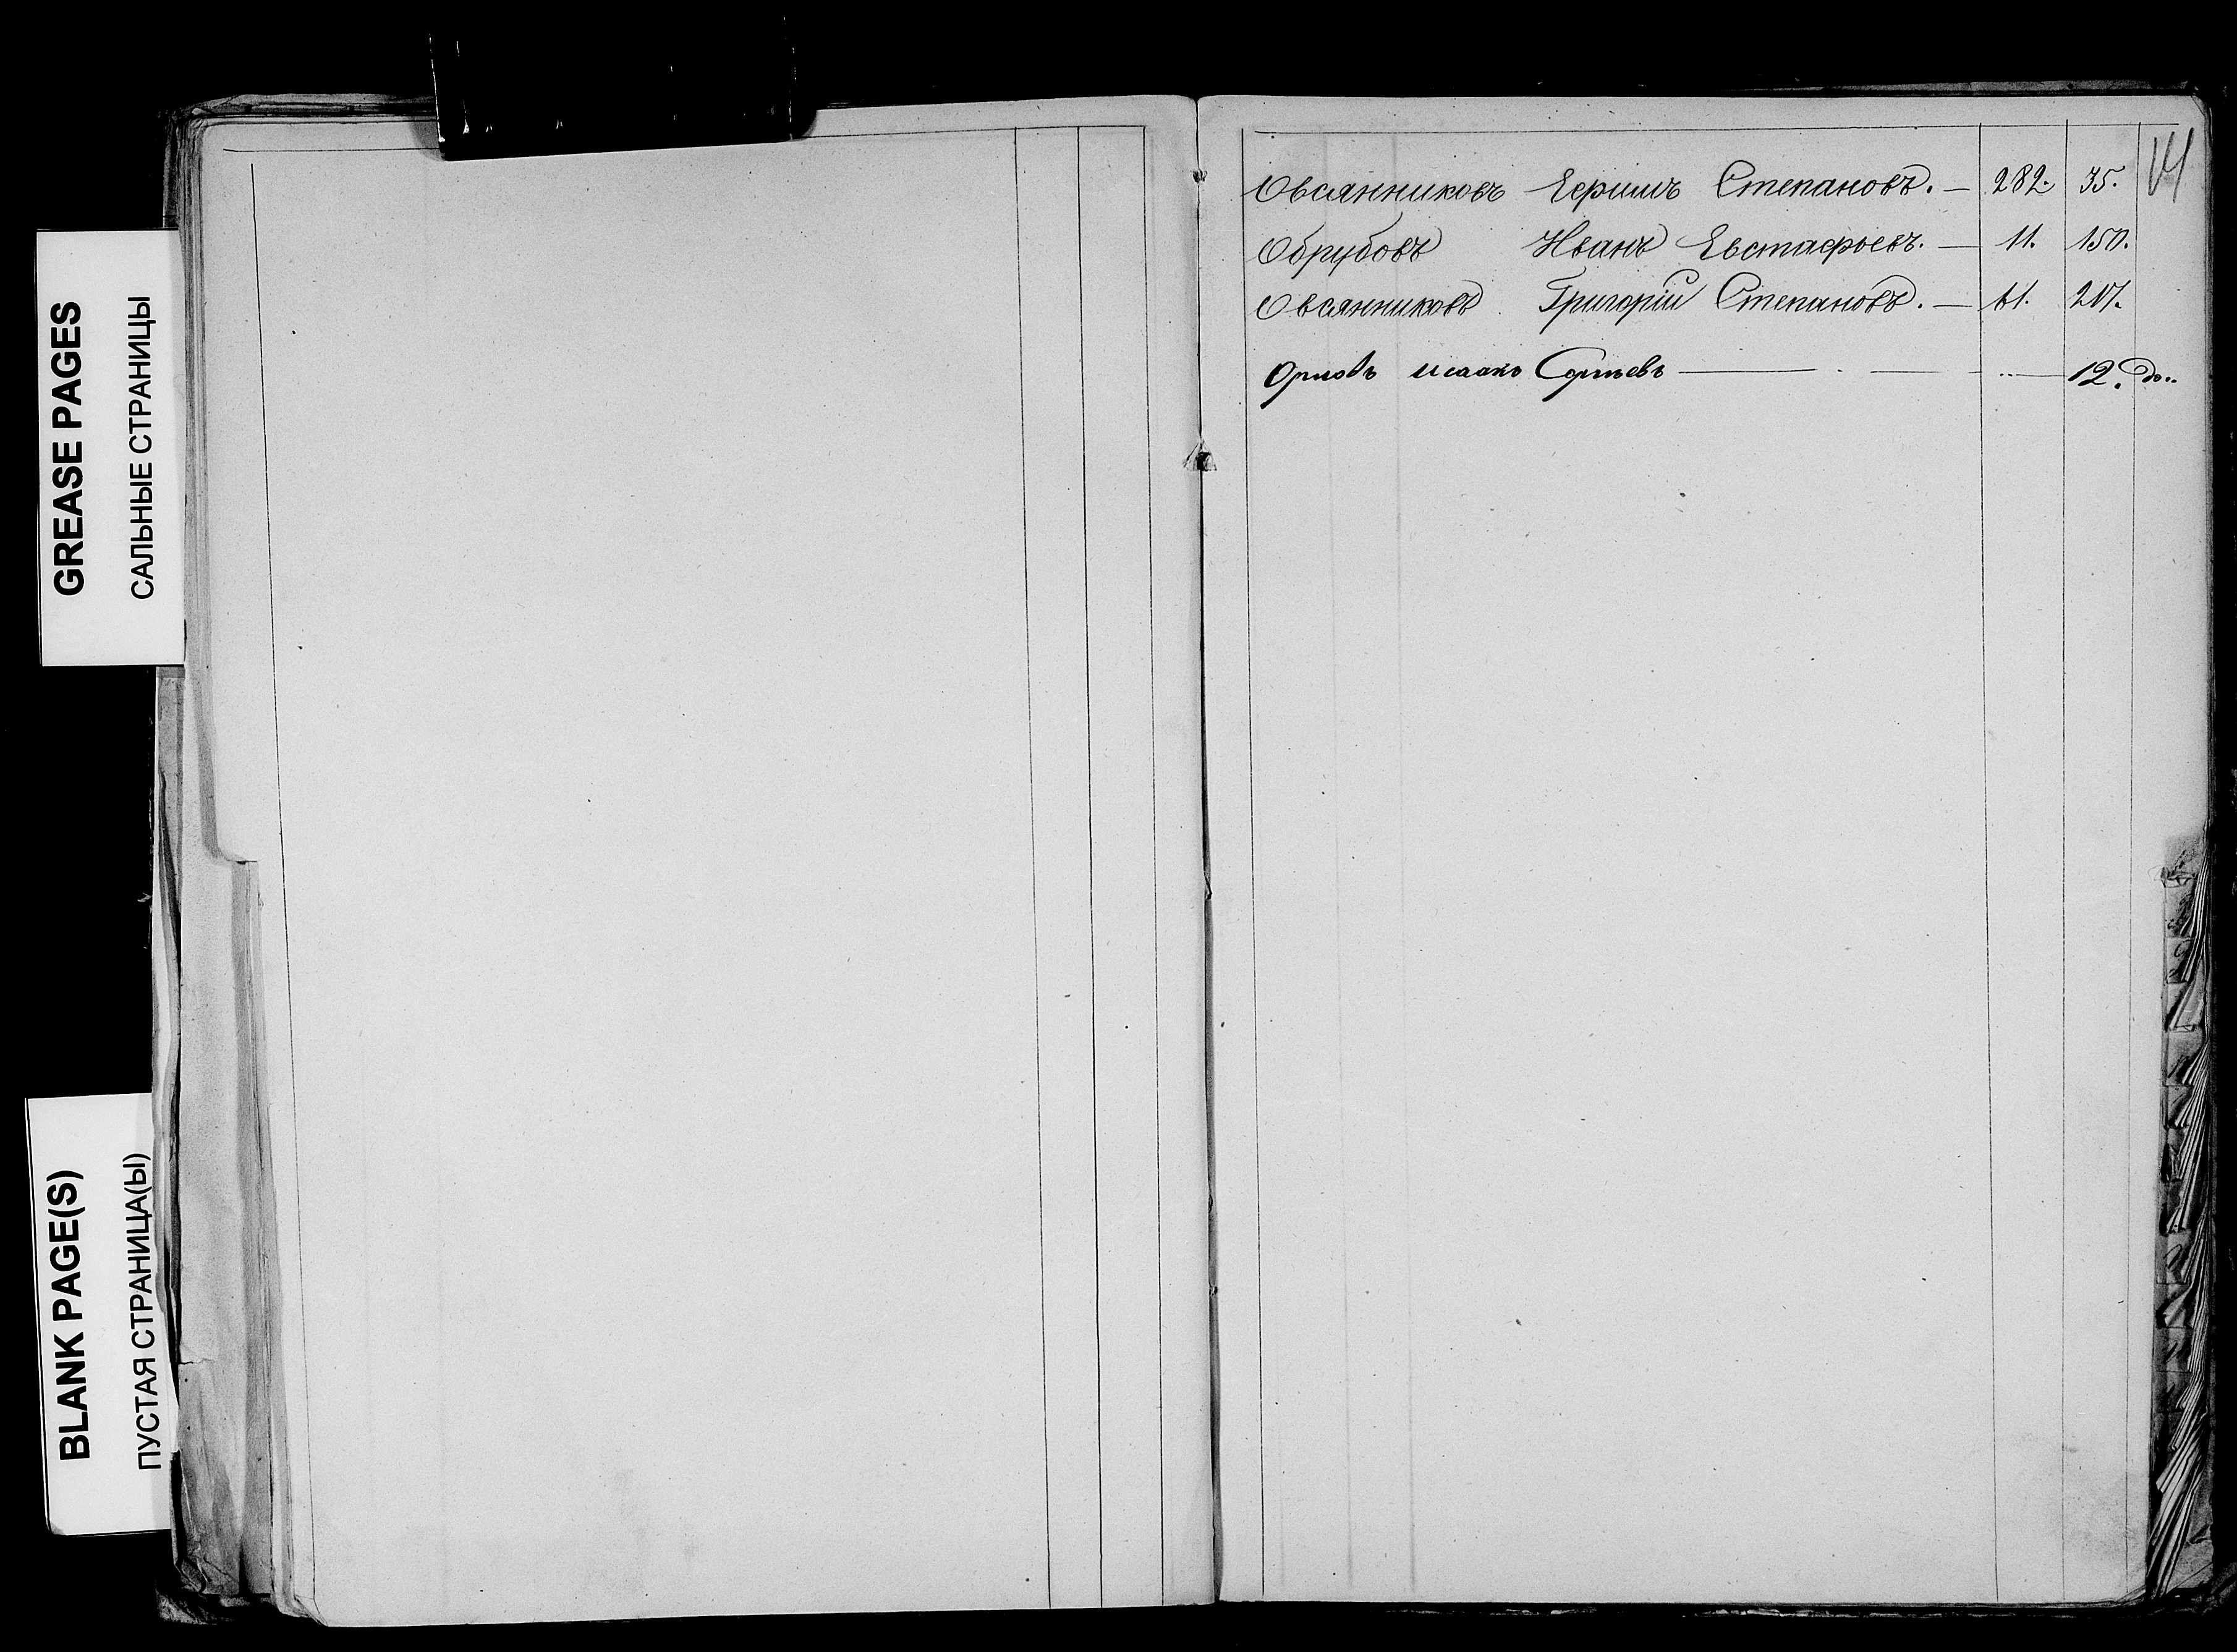 GREASE PAGES
САЛЬНЫЕ СТРАНИЦЫ
BLANK PAGE(S)
ПУСТАЯ СТРАНИЦА(Ы)
Овсянниковъ Ефимъ Степановъ. — 282. 35.
Обрубовъ Иванъ Евстафьевъ. — 11. 150.
Овсянниковъ Григорій Степановъ. — 61. 207.
Орловъ Исаакъ Сергѣевъ — 12.